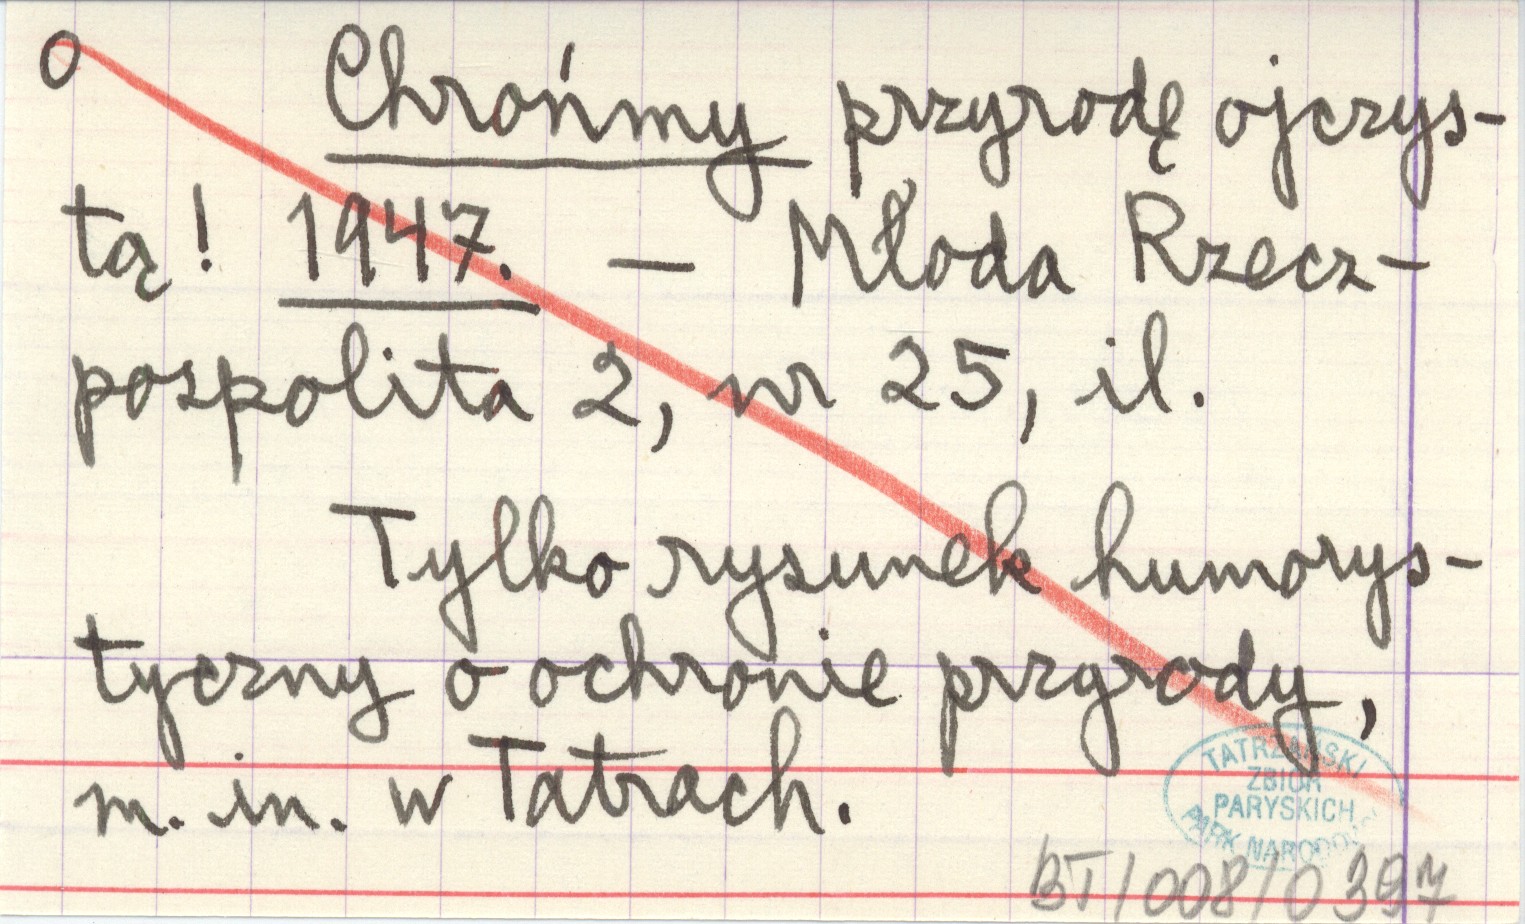 o Chrońmy przyrodę ojczys-
tą! 1947. — Młoda Rzecz-
pospolita 2, nr 25, il.
Tylko rysunek humorys-
tyczny o ochronie przyrody,
m. in. w Tatrach.
TATRZAŃSKI
ZBIÓR
PARYSKICH
PARK NARODOWY
BT/008/0397